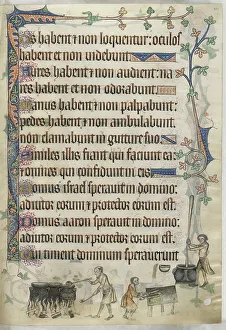 Os habent & non loquentur: oculos
habent et non videbunt.
Aures habent & non audient: na
res habent et non odorabunt.
Manus habent & non palpabunt:
pedes habent et non ambulabunt:
non clamabunt in gutture suo.
Similes illis fiant qui faciunt ea:
& omnes qui confidunt in eis.
Domus israel speravit in domino:
adiutor eorum & protector eorum est.
Domus aaron speravit in domino:
adiutor eorum et protector eorum est.
Qui timent dominum speraverunt